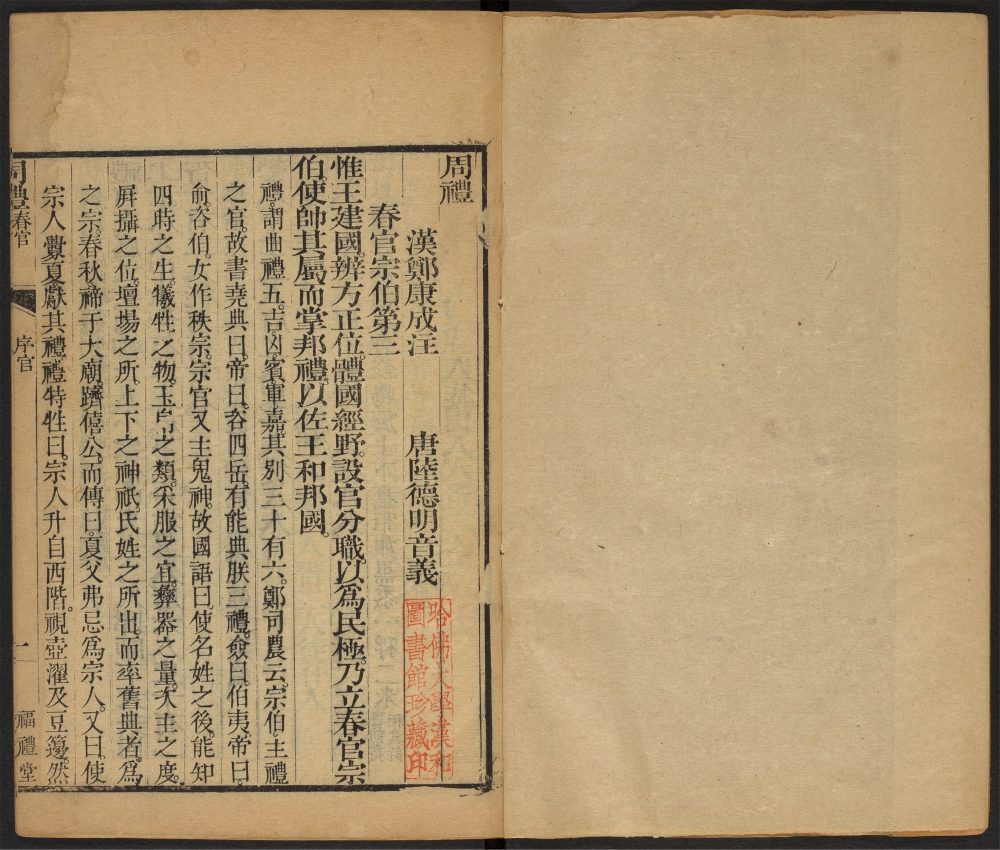 周禮
漢鄭康成注 唐陸德明音義
哈佛大學漢和
圖書館珍藏印
春官宗伯第三
惟王建國。辨方正位。體國經野。設官分職。以爲民極。乃立春官宗
伯。使帥其屬而掌邦禮。以佐王和邦國。
禮。謂曲禮五。吉凶賓軍嘉。其別三十有六。鄭司農云。宗伯。主禮
之官。故書堯典曰。帝曰。咨四岳。有能典朕三禮。僉曰。伯夷。帝曰。
俞。咨伯。女作秩宗。宗官又主鬼神。故國語曰。使名姓之後。能知
四時之生。犧牲之物。玉帛之類。采服之宜。彝器之量。次主之度。
屛攝之位。壇場之所。上下之神祇。氏姓之所出。而率舊典者。爲
之宗。春秋。禘于大廟。躋僖公。而傳曰。夏父弗忌爲宗人。又曰。使
宗人釁夏獻其禮。禮特牲曰。宗人升自西階。視壺濯及豆籩。然
周禮春官 序官 一 福禮堂